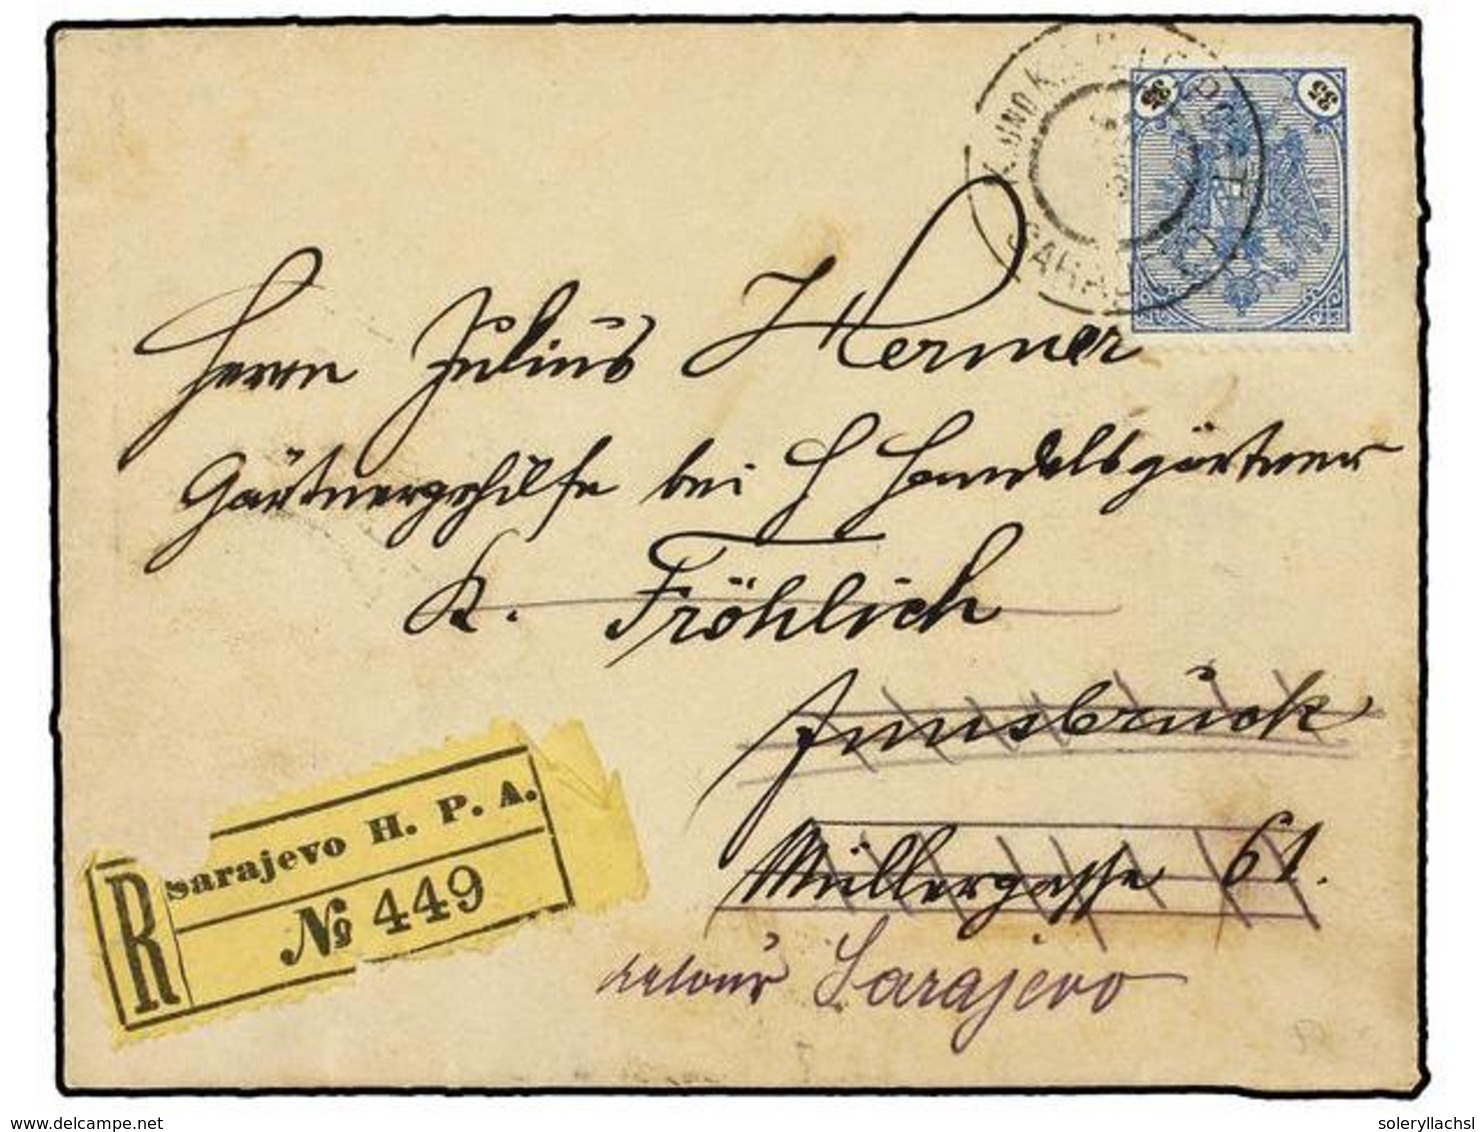 K. UND K. MILIT. POST
SARAJEVO
35 35
Herrn Julius Hermer
Gärtnergehilfe bei H Handelsgärtner
K. Fröhlich
Innsbruck
Müllergasse 61.
retour Sarajevo
R Sarajevo H. P. A.
№ 449
www.delcampe.net
soleryllachsl